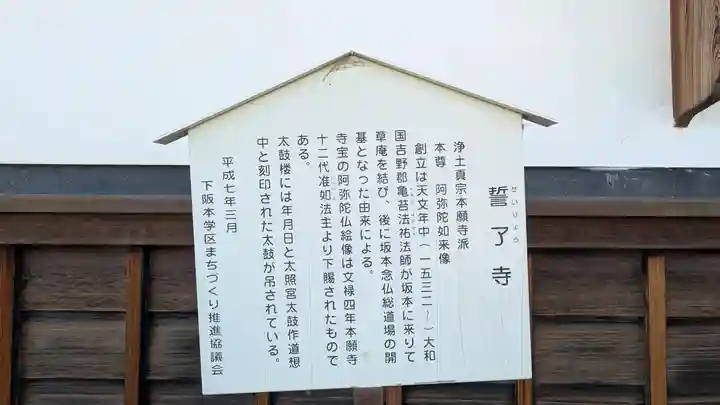 誓了寺
せいりょうじ
浄土真宗本願寺派
本尊 阿弥陀如来像
創立は天文年中(一五三二～)大和
国吉野郡亀苔法祐法師が坂本に来りて
草庵を結び、後に坂本念仏総道場の開
基となった由来による。
寺宝の阿弥陀仏絵像は文禄四年本願寺
十二代准如法主より下賜されたもので
ある。
太鼓楼には年月日と太照宮太鼓作道想
中と刻印された太鼓が吊されている。
平成七年三月
下阪本学区まちづくり推進協議会